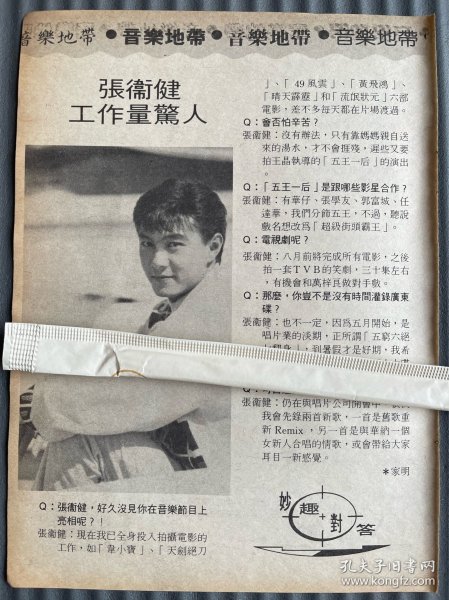 音樂地帶●音樂地帶●音樂地帶●音樂地帶
張衞健
工作量驚人
Q：張衞健，好久沒見你在音樂節目上
亮相呢？！
張衞健：現在我已全身投入拍攝電影的
工作，如「韋小寶」、「天劍絕刀
」、「49風雲」、「黃飛鴻」、
「晴天霹靂」和「流氓狀元」六部
電影，差不多每天都在片場渡過。
Q：會否怕辛苦？
張衞健：沒有辦法，只有靠媽媽親自送
來的湯水，才不會捱殘，遲些又要
拍王晶執導的「五王一后」的演出
。
Q：「五王一后」是跟哪些影星合作？
張衞健：有華仔、張學友、郭富城、任
達華，我們分飾五王，不過，聽說
戲名想改爲「超級街頭霸王」。
Q：電視劇呢？
張衞健：八月前將完成所有電影，之後
拍一套TVB的笑劇，三十集左右
，有機會和萬梓良做對手戲。
Q：那麼，你豈不是沒有時間灌錄廣東
碟？
張衞健：也不一定，因爲五月開始，是
唱片業的淡期，正所謂「五窮六絕
到暑假才是好期，我希
張衞健：仍在與唱片公司開會中
我會先錄兩首新歌，一首是舊歌重
新Remix，另一首是與華納一個
女新人合唱的情歌，或會帶給大家
耳目一新感覺。
＊家明
妙趣對答
孔夫子旧书网